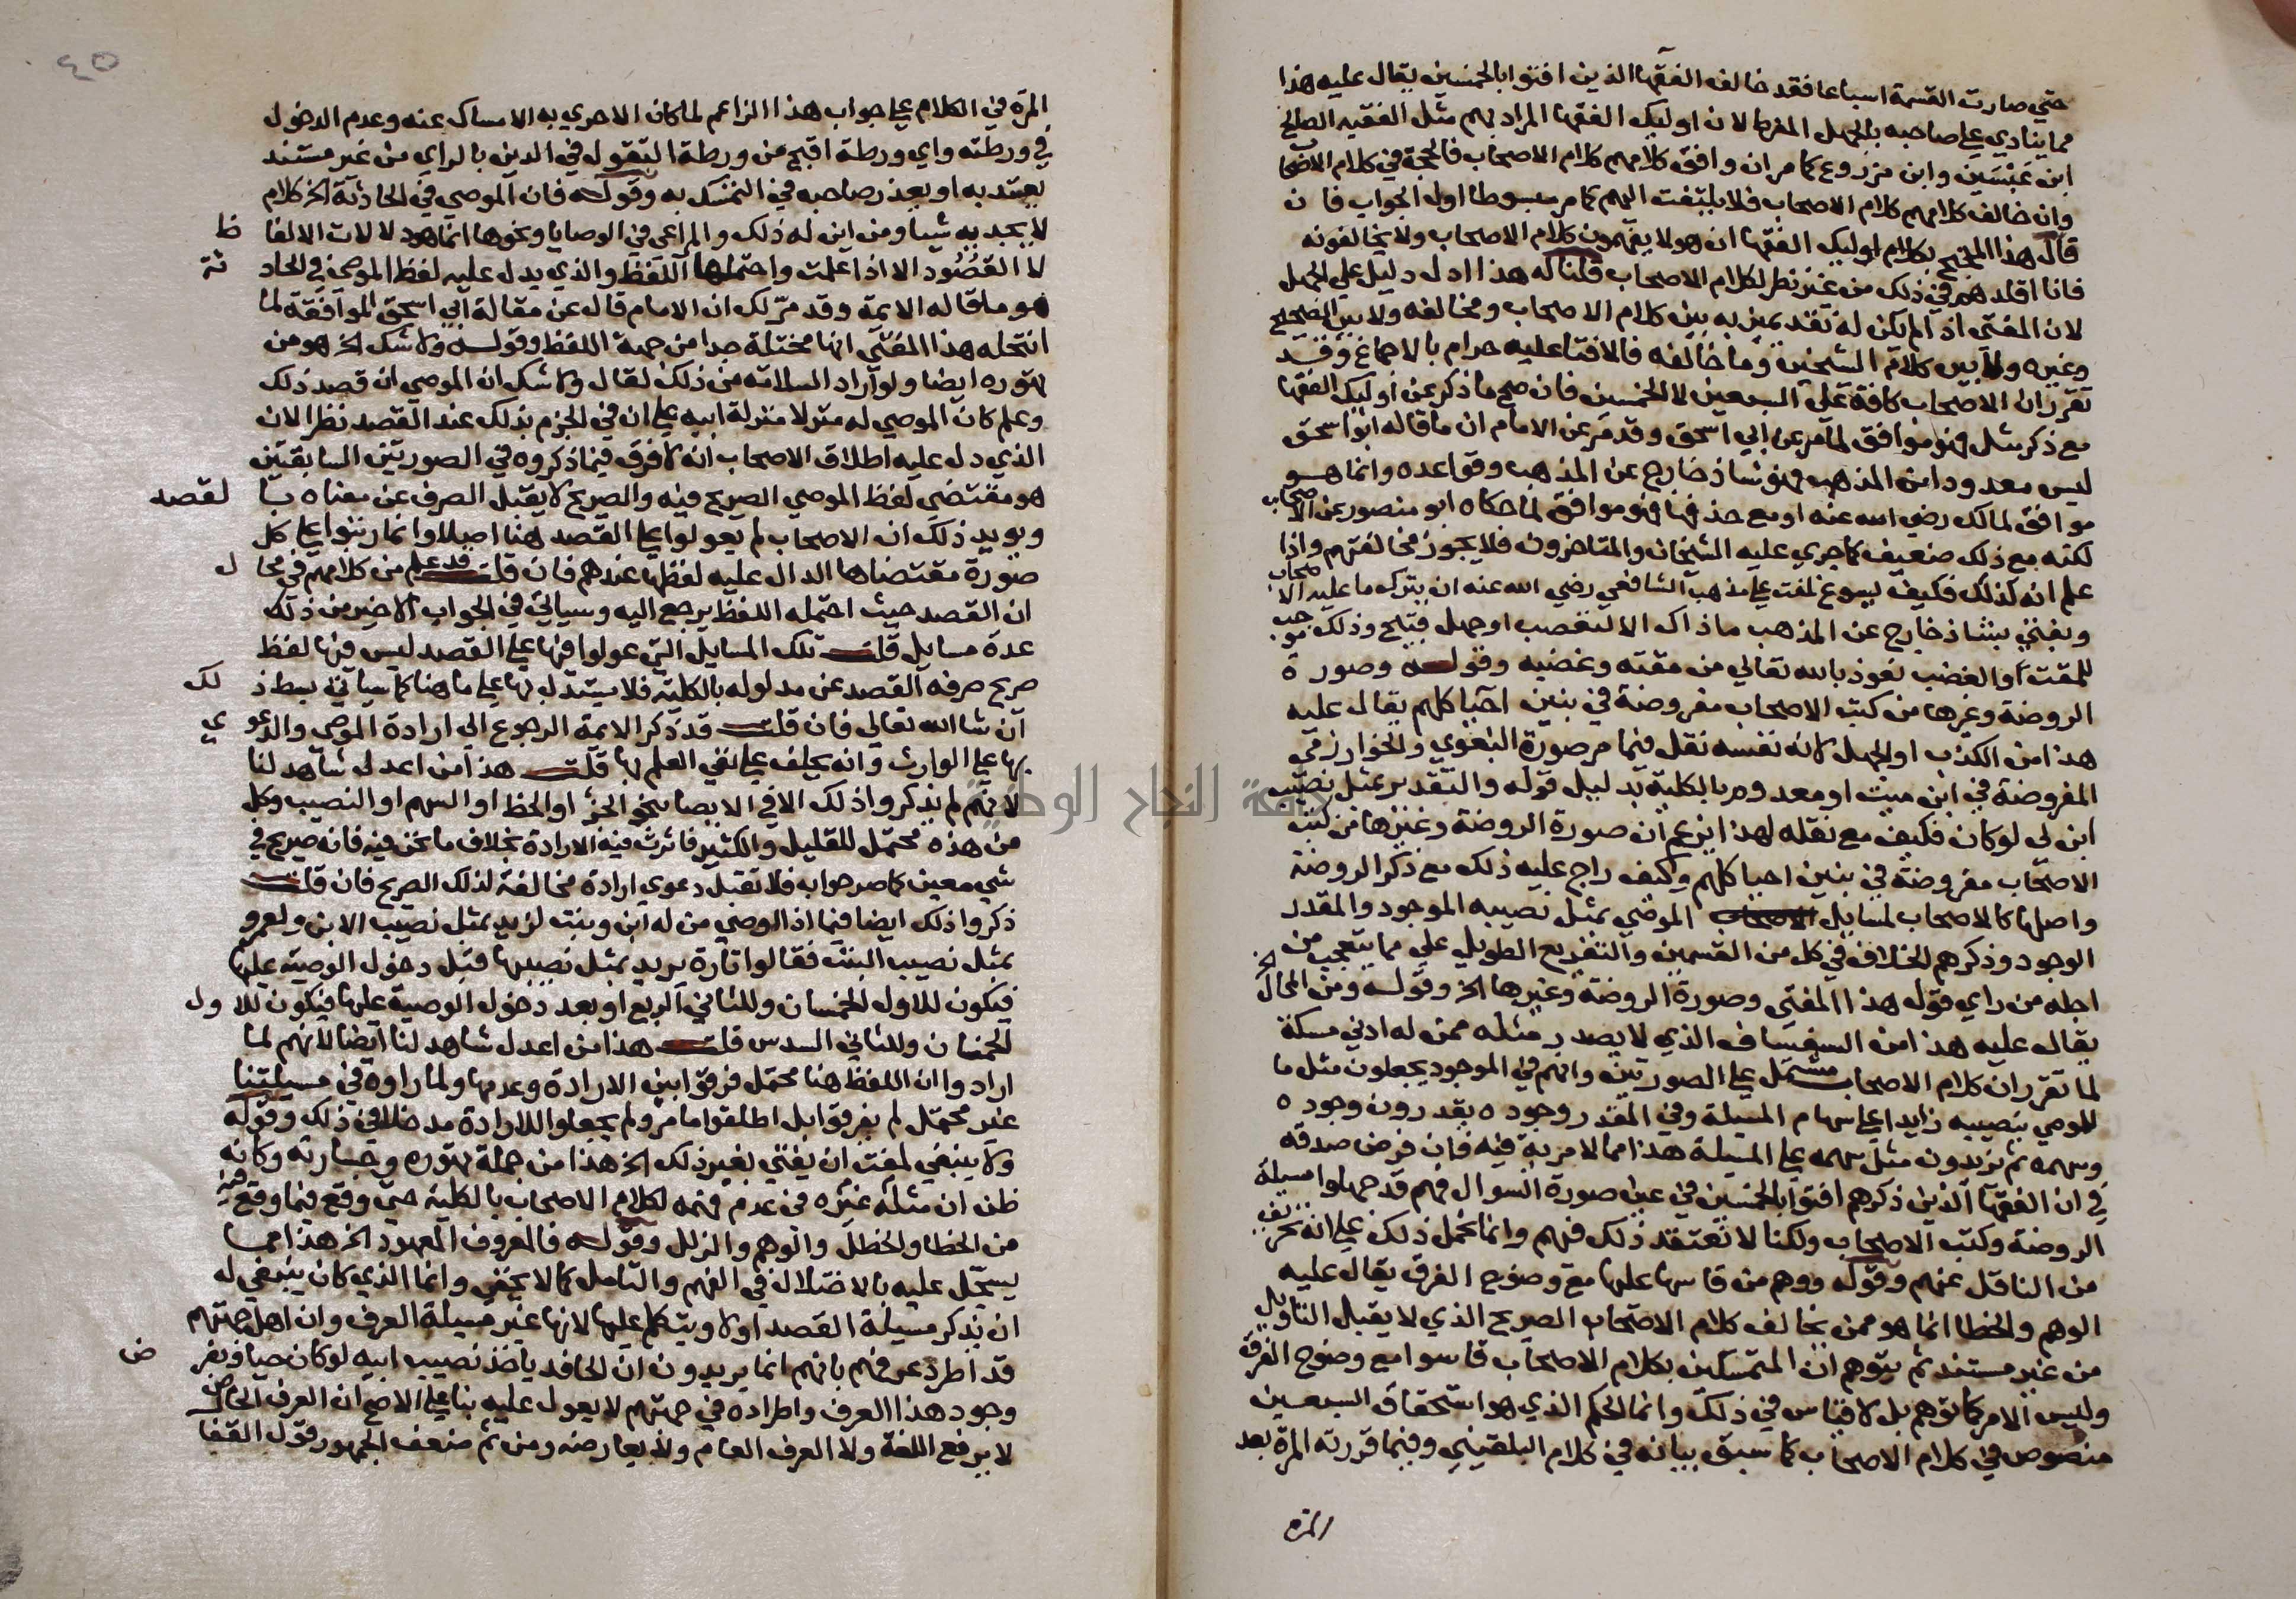 حتي صارت القسمة اسباعا فقد خالف الفقها الذين افتوا بالخمسين يقال عليه هذا
مما ينادي علي صاحبه بالجهل المفرط لان اوليك الفقها المراد بهم مثل الفقيه الصالح
ابن عبسين وابن مزروع كما مر ان وافق كلامهم كلام الاصحاب فالحجة في كلام الاصحاب
وان خالف كلامهم كلام الاصحاب فلا يلتفت اليهم كما مر مبسوطا اول الجواب فان
قال هذا المحتج بكلام اوليك الفقها ان هولا يفهمون كلام الاصحاب ولا يخالفونه
فانا اقلدهم في ذلك من غير نظر لكلام الاصحاب قلنا له هذا ادل دليل علي الجهل
لان المفتي اذا لم يكن له نقد يميز به بين كلام الاصحاب ومخالفه ولا بين الصحيح
وغيره ولا بين كلام الشيخين وما خالفه فالافتا عليه حرام بالاجماع وقد
تقرر ان الاصحاب كافة علي السبعين لا الخمسين فان صح ما ذكر عن اوليك الفقها
مع ذكر مثل فهو موافق لما مر عن ابي اسحق وقد مر عن الامام ان ما قاله ابو اسحق
ليس معدودا من المذهب فهو شاذ خارج عن المذهب وقواعده وانما هو
موافق لمالك رضي الله عنه او مع حذفها فهو موافق لما حكاه ابو منصور عن الاصحاب
لكنه مع ذلك ضعيف كما جري عليه الشيخان والمتاخرون فلا يجوز مخالفتهم واذا
علم انه كذلك فكيف يسوغ لمفت علي مذهب الشافعي رضي الله عنه ان يترك ما عليه الاصحاب
ويفتي بشاذ خارج عن المذهب ما ذاك الا لتعصب او جهل قبيح وذلك موجب
للمقت او الغضب نعوذ بالله تعالي من مقته وغضبه وقوله وصورة
الروضة وغيرها من كتب الاصحاب مفروضة في بنين احيا كلهم يقال عليه
هذا من الكذب او الجهل لانه نفسه نقل فيما مر صورة البغوي والخوارزمي
المفروضة في ابن ميت او معدوم بالكلية بدليل قوله والتقدير بمثل نصيب
ابن لي لو كان فكيف مع نقله لهذا يزعم ان صورة الروضة وغيرها من كتب
الاصحاب مفروضة في بنين احيا كلهم وكيف راج عليه ذلك مع ذكر الروضة
واصلها كالاصحاب لمسايل الموصي بمثل نصيبه الموجود والمقدر
الوجود وذكرهم الخلاف في كل من القسمين والتفريع الطويل علي مما يتعجب من
اجله من راي قوله هذا المفتي وصورة الروضة وغيرها الخ وقوله ومن المحال الخ
يقال عليه هذا من السفساف الذي لا يصدر مثله ممن له ادني مسكة
لما تقرر ان كلام الاصحاب مشتمل علي الصورتين وانهم في الموجود يجعلون مثل ما
للموصي بنصيبه زايدا علي سهام المسيلة وفي المقدر وجوده يقدرون وجوده
وسهمه ثم يزيدون مثل سهمه علي المسيلة هذا مما لا مرية فيه فان فرض صدقه
في ان الفقها الذين ذكرهم افتوا بالخمسين في عين صورة السوال فهم قد جهلوا مسيلة
الروضة وكتب الاصحاب ولكنا لا نعتقد ذلك فيهم وانما نحمل ذلك علي انه تحريف
من الناقل عنهم وقوله ووهم من قاسها عليها مع وضوح الفرق يقال عليه
الوهم والخطا انما هو ممن يخالف كلام الاصحاب الصريح الذي لا يقبل التاويل
من غير مستند ثم يتوهم ان المتمسكين بكلام الاصحاب قاسوا مع وضوح الفرق
وليس الامر كما توهم بل لا قياس في ذلك وانما الحكم الذي هو استحقاق السبعين
منصوص في كلام الاصحاب كما سبق بيانه في كلام البلقيني وفيما قررته المرة بعد
المرة
٤٥
المرة في الكلام علي جواب هذا الزاعم لما كان الاحري به الامساك عنه وعدم الدخول
في ورطته واي ورطة اقبح من ورطة التقول في الدين بالراي من غير مستند
يعتد به او يعذر صاحبه في التمسك به وقوله فان الموصي في الحادثة الخ كلام
لا يجديه شيا ومن اين له ذلك والمراعي في الوصايا ونحوها انما هو دلالات الالفاظ
لا القصود الا اذا علمت واحتملها اللفظ والذي يدل عليه لفظ الموصي في الحادثة
هو ما قاله الايمة وقد مر لك ان الامام قال عن مقالة ابي اسحق الموافقة لما
انتحله هذا المفتي انها مختلة جدا من جهة اللفظ وقوله ولا شك الخ هو من
تهوره ايضا ولو اراد السلامة من ذلك لقال ولا شك ان الموصي ان قصد ذلك
وعلم كان الموصي له منزلا منزلة ابيه علي ان في الجزم بذلك عند القصد نظرا لان
الذي دل عليه اطلاق الاصحاب انه لا فرق فيما ذكروه في الصورتين السابقتين
هو مقتضي لفظ الموصي الصريح فيه والصريح لا يقبل الصرف عن معناه بالقصد
ويويد ذلك ان الاصحاب لم يعولوا علي القصد هنا اصلا وانما رتبوا علي كل
صورة مقتضاها الدال عليه لفظها عندهم فان قلت قد علم من كلامهم في محال
ان القصد حيث احتمله اللفظ يرجع اليه وسياتي في الجواب الاخير من ذلك
عدة مسايل قلت تلك المسايل التي عولوا فيها علي القصد ليس فيها لفظ
صريح صرفه القصد عن مدلوله بالكلية فلا يستدل بها علي ما هنا كما سياتي بسط ذلك
ان شا الله تعالي فان قلت قد ذكر الايمة الرجوع الي ارادة الموصي والدعوي
بها علي الوارث وانه يحلف علي نفي العلم بها قلت هذا من اعدل شاهد لنا
لانهم لم يذكروا ذلك الا في الايصا بنحو الجز او الحظ او السهم او النصيب وكل
من هذه محتمل للقليل والكثير فاثرت فيه الارادة بخلاف ما نحن فيه فانه صريح في
شي معين كما مر جوابه فلا تقبل دعوي ارادة مخالفة لذلك الصريح فان قلت
ذكروا ذلك ايضا فيما اذا اوصي من له ابن وبنت لزيد بمثل نصيب الابن ولعمرو
بمثل نصيب البنت فقالوا تارة يريد بمثل نصيبها قبل دخول الوصية عليها
فيكون للاول الخمسان وللثاني الربع او بعد دخول الوصية عليها فيكون للاول
الخمسان وللثاني السدس قلت هذا من اعدل شاهد لنا ايضا لانهم لما
ارادوا ان اللفظ هنا محتمل فرقوا بين الارادة وعدمها ولما راوه في مسيلتنا
غير محتمل لم يفرقوا بل اطلقوا ما مر ولم يجعلوا للارادة مدخلا في ذلك وقوله
ولا ينبغي لمفت ان يفتي بغير ذلك الخ هذا من جملة تهوره وجسارته وكانه
ظن ان مثله غيره في عدم فهمه لكلام الاصحاب بالكلية حتي وقع فيما وقع فيه
من الخطا والخطل والوهم والزلل وقوله فالمعروف المعهود الخ هذا مما
يسجل عليه بالاختلال في الفهم والتامل كما لا يخفي وانما الذي كان ينبغي له
ان يذكر مسيلة القصد اولا ويتكلم عليها لانها غير مسيلة العرف وان اهل جهتهم
قد اطرد عرفهم بانهم انما يريدون ان الحافد ياخذ نصيب ابيه لو كان حيا وبفرض
وجود هذا العرف واطراده في جهتهم لا يعول عليه بنا علي الاصح ان العرف الخاص
لا يرفع اللغة ولا العرف العام ولا يعارضه ومن ثم ضعف الجمهور قول القفا
جامعة النجاح الوطنية